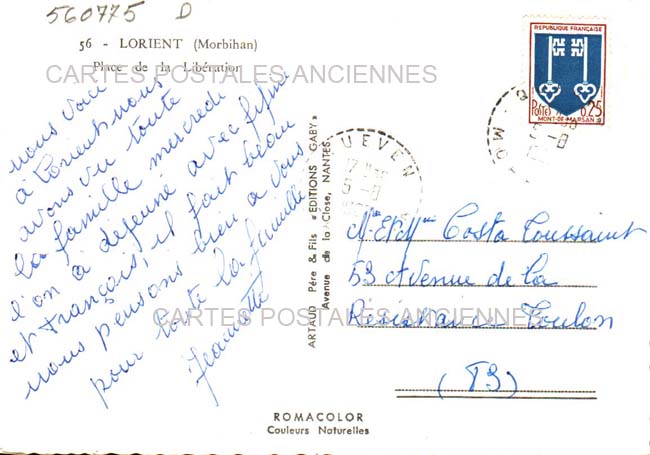 560775 D
56 - LORIENT (Morbihan)
Place de la Libération
CARTES POSTALES ANCIENNES
nous voici
à Lorient nous
avons vu toute
la famille mercredi
l'on a déjeuné avec fifine
et François, il fait beau
nous pensons bien a vous
pour toute la famille
Jeannette
ARTAUD Père & Fils «EDITIONS GABY»
Avenue de la Close, NANTES
REPUBLIQUE FRANÇAISE
POSTES 0,25
MONT-DE-MARSAN
QUEVEN
Mr et Mme Costa Toussaint
53 Avenue de la
Résistance Toulon
CARTES POSTALES ANCIENNES
ROMACOLOR
Couleurs Naturelles